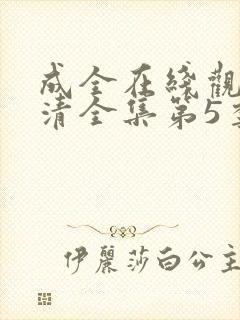 成全在綫觀
清全集第5季
伊麗莎白公主